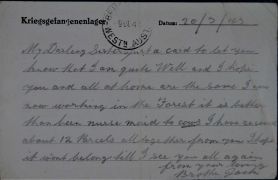 Kriegsgefangenenlager
Datum: 20/3/43
WEST AUST
My Darling Sister Just a card to let you
know that I am quite Well and I hope
you and all at home are the same I am
now working in the Forest it is better
than been nurse maid to cows I have received
about 12 Parcels all together from you I hope
it wont be long till I see you all again
from your loving
Brother Jack